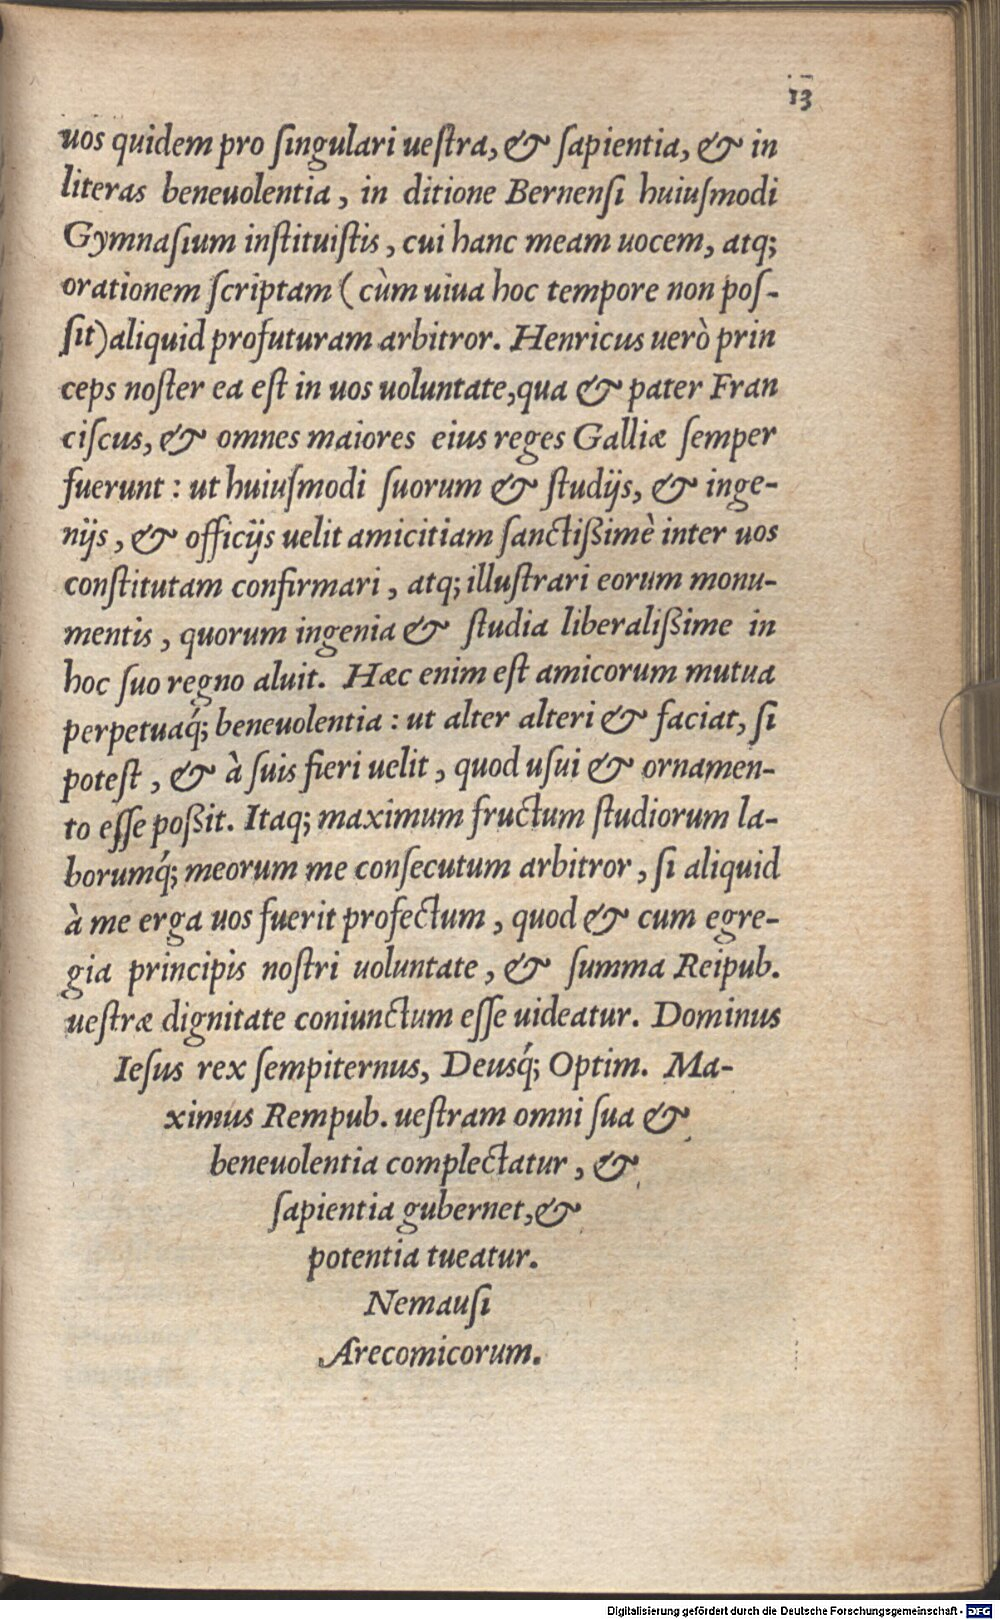 13
uos quidem pro ſingulari ueſtra, & ſapientia, & in
literas beneuolentia, in ditione Bernenſi huiuſmodi
Gymnaſium inſtituiſtis, cui hanc meam uocem, atq;
orationem ſcriptam (cùm uiua hoc tempore non poſ-
ſit) aliquid profuturam arbitror. Henricus uerò prin
ceps noſter ea eſt in uos uoluntate, qua & pater Fran
ciſcus, & omnes maiores eius reges Galliæ ſemper
fuerunt: ut huiuſmodi ſuorum & ſtudijs, & inge-
nijs, & officijs uelit amicitiam ſanctißimè inter uos
conſtitutam confirmari, atq; illuſtrari eorum monu-
mentis, quorum ingenia & ſtudia liberalißime in
hoc ſuo regno aluit. Hæc enim eſt amicorum mutua
perpetuaq́; beneuolentia: ut alter alteri & faciat, ſi
poteſt, & à ſuis fieri uelit, quod uſui & ornamen-
to eſſe poßit. Itaq; maximum fructum ſtudiorum la-
borumq́; meorum me conſecutum arbitror, ſi aliquid
à me erga uos fuerit profectum, quod & cum egre-
gia principis noſtri uoluntate, & ſumma Reipub.
ueſtræ dignitate coniunctum eſſe uideatur. Dominus
Ieſus rex ſempiternus, Deusq́; Optim. Ma-
ximus Rempub. ueſtram omni ſua &
beneuolentia complectatur, &
ſapientia gubernet, &
potentia tueatur.
Nemauſi
Arecomicorum.
Digitalisierung gefördert durch die Deutsche Forschungsgemeinschaft - DFG